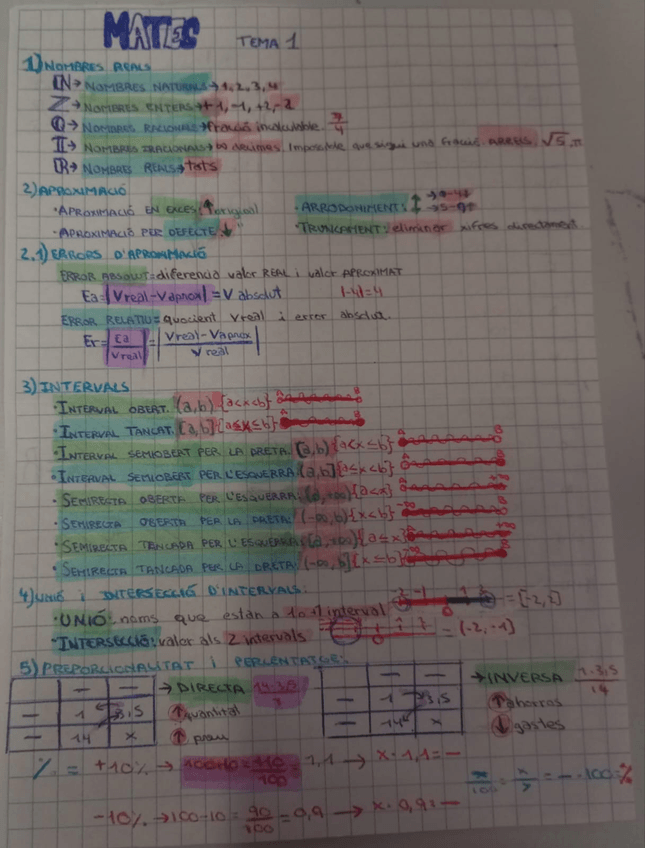 MATES TEMA 1
1) NOMBRES REALS
N → NOMBRES NATURALS → 1, 2, 3, 4
Z → NOMBRES ENTERS → +1, -1, +2, -2
Q → NOMBRES RACIONALS → fracció 7/4
II → NOMBRES IRACIONALS → ∞ decimals. Impossible que sigue una fracció. ARRELS, √5, π
R → NOMBRES REALS → tots
2) APROXIMACIÓ
· APROXIMACIÓ EN EXCÉS (↑ original)
· ARRODONIMENT:
- APROXIMACIÓ PER DEFECTE ↓ "
· TRUNCAMENT: eliminar xifres directament
2.1) ERRORS D'APROXIMACIÓ
ERROR ABSOLUT = diferencia valor REAL i valor APROXIMAT
Ea = |Vreal - Vaprox| = V absolut |-4| = 4
ERROR RELATIU = quocient Vreal i error absolut.
Er = |Ea / Vreal| = |Vreal - Vaprox / Vreal|
3) INTERVALS
· INTERVAL OBERT. (a, b) {a<x<b}
· INTERVAL TANCAT. [a, b] {a≤x≤b}
· INTERVAL SEMIOBERT PER LA DRETA. (a, b) {a<x≤b}
· INTERVAL SEMIOBERT PER L'ESQUERRA (a, b] {a≤x<b}
· SEMIRECTA OBERTA PER L'ESQUERRA (a, +∞) {a<x}
· SEMIRECTA OBERTA PER LA DRETA (-∞, b) {x<b}
· SEMIRECTA TANCADA PER L'ESQUERRA [a, +∞) {a≤x}
· SEMIRECTA TANCADA PER LA DRETA (-∞, b] {x≤b}
4) UNIÓ i INTERSECCIÓ D'INTERVALS:
· UNIÓ: noms que están a 1 o interval = [-2, 2]
· INTERSECCIÓ: valor als 2 intervals = (-2, -1]
5) PREPORCIONALITAT i PERCENTATGE:
→ DIRECTA 14·3,5
→ INVERSA 1·3,5 / 14
1 3,5
↑ quantitat
1 3,5
↑ ahorros
14 x
↑ preu
14 x
↓ gastes
% = +10% → 100+10 = 110/100 = 1,1 → x · 1,1 = —
/100 = — · 100 = %
-10% → 100-10 = 90/100 = 0,9 → x · 0,9 = —